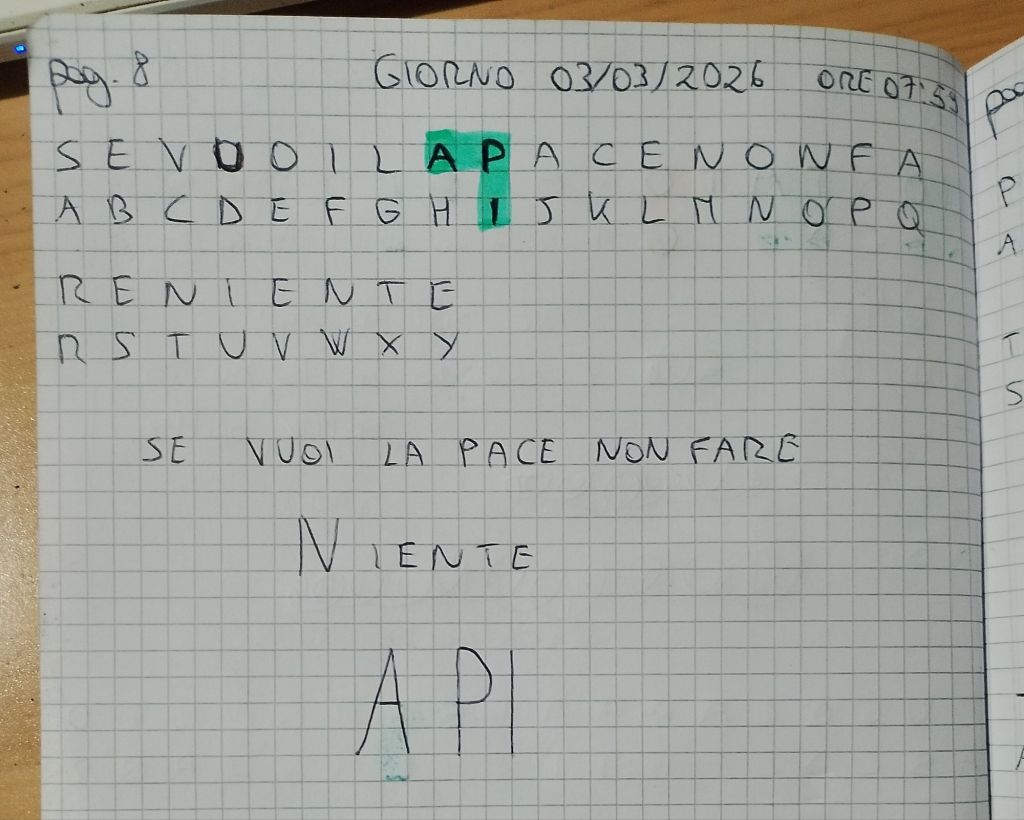 pag. 8 GIORNO 03/03/2026 ORE 07:59
S E V U O I L A P A C E N O N F A
A B C D E F G H I J K L M N O P Q
R E N I E N T E
R S T U V W X Y
SE VUOI LA PACE NON FARE
NIENTE
API